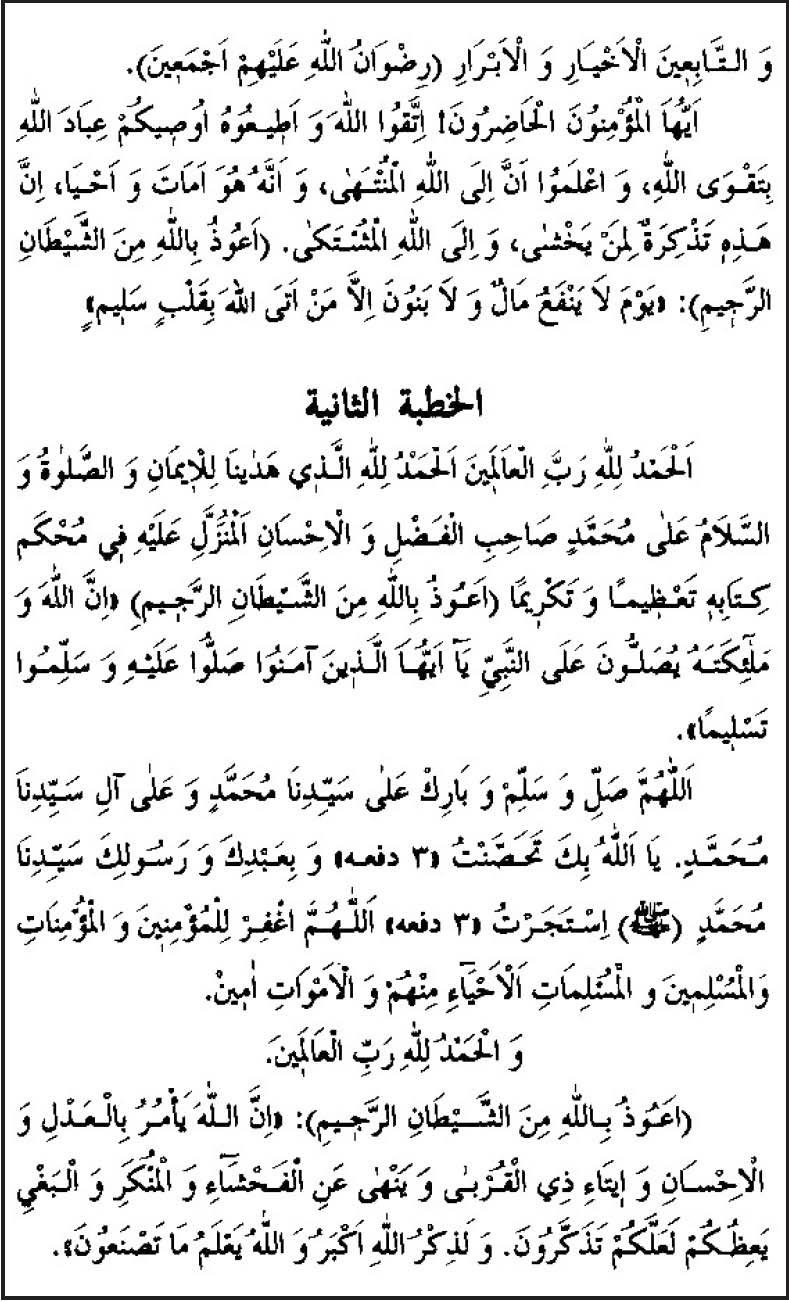 وَ التَّابِعِينَ الْاَخْيَارِ وَ الْاَبْرَارِ (رِضْوَانُ اللهِ عَلَيْهِمْ اَجْمَعِينَ).
اَيُّهَا الْمُؤْمِنُونَ الْحَاضِرُونَ! اِتَّقُوا اللهَ وَ اَطِيعُوهُ اُوصِيكُمْ عِبَادَ اللهِ
بِتَقْوَى اللهِ، وَ اعْلَمُوا اَنَّ اِلَى اللهِ الْمُنْتَهٰى، وَ اَنَّهُ هُوَ اَمَاتَ وَ اَحْيَا، اِنَّ
هَذِهِ تَذْكِرَةٌ لِمَنْ يَخْشٰى، وَ اِلَى اللهِ الْمُشْتَكٰى. (اَعُوذُ بِاللهِ مِنَ الشَّيْطَانِ
الرَّجِيمِ): «يَوْمَ لَا يَنْفَعُ مَالٌ وَ لَا بَنُونَ اِلَّا مَنْ اَتَى اللهَ بِقَلْبٍ سَلِيمٍ»
الخطبة الثانية
اَلْحَمْدُ لِلّٰهِ رَبَّ الْعَالَمِينَ اَلْحَمْدُ لِلّٰهِ الَّذِي هَدٰينَا لِلْاِيمَانِ وَ الصَّلٰوةُ وَ
السَّلَامُ عَلٰى مُحَمَّدٍ صَاحِبِ الْفَضْلِ وَ الْاِحْسَانِ اَلْمُنَزَّلِ عَلَيْهِ فِي مُحْكَمِ
كِتَابِهِ تَعْظِيمًا وَ تَكْرِيمًا (اَعُوذُ بِاللهِ مِنَ الشَّيْطَانِ الرَّجِيمِ) «اِنَّ اللهَ وَ
مَلٰٓئِكَتَهُ يُصَلُّونَ عَلَى النَّبِيِّ يَآ اَيُّهَا الَّذِينَ آمَنُوا صَلُّوا عَلَيْهِ وَ سَلِّمُوا
تَسْلِيمًا».
اَللّٰهُمَّ صَلِّ وَ سَلِّمْ وَ بَارِكْ عَلٰى سَيِّدِنَا مُحَمَّدٍ وَ عَلٰى آلِ سَيِّدِنَا
مُحَمَّدٍ. يَا اَللهُ بِكَ تَحَصَّنْتُ «٣ دفعه» وَ بِعَبْدِكَ وَ رَسُولِكَ سَيِّدِنَا
مُحَمَّدٍ (ﷺ) اِسْتَجَرْتُ «٣ دفعه» اَللّٰهُمَّ اغْفِرْ لِلْمُؤْمِنِينَ وَ الْمُؤْمِنَاتِ
وَالْمُسْلِمِينَ و الْمُسْلِمَاتِ اَلْاَحْيَآءِ مِنْهُمْ وَ الْاَمْوَاتِ اٰمِينْ.
وَ الْحَمْدُ لِلّٰهِ رَبِّ الْعَالَمِينَ.
(اَعُوذُ بِاللهِ مِنَ الشَّيْطَانِ الرَّجِيمِ): «اِنَّ اللهَ يَأْمُرُ بِالْعَدْلِ وَ
الْاِحْسَانِ وَ اِيتَاءِ ذِي الْقُرْبٰى وَ يَنْهٰى عَنِ الْفَحْشَآءِ وَ الْمُنْكَرِ وَ الْبَغْيِ
يَعِظُكُمْ لَعَلَّكُمْ تَذَكَّرُونَ. وَ لَذِكْرُ اللهِ اَكْبَرُ وَ اللهُ يَعْلَمُ مَا تَصْنَعُونَ».